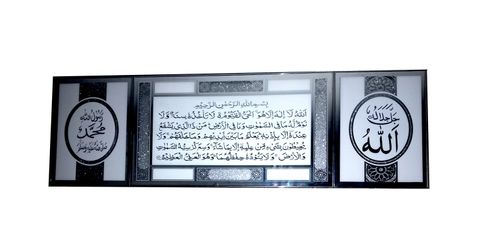 جل جلاله
الله
بسم الله الرحمن الرحيم
الله لا إله إلا هو الحي القيوم لا تأخذه سنة ولا
نوم له ما في السموت وما في الأرض من ذا الذي يشفع
عنده إلا بإذنه يعلم ما بين أيديهم وما خلفهم ولا
يحيطون بشيء من علمه إلا بما شاء وسع كرسيه السموت
والأرض ولا يئوده حفظهما وهو العلي العظيم
رسول الله
محمد
صلى الله عليه وسلم